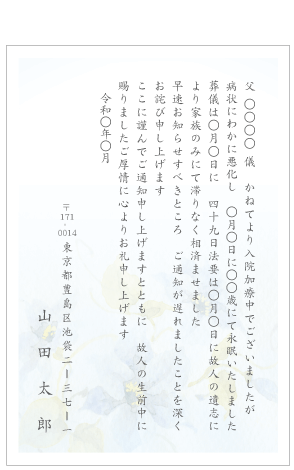 父 〇〇〇〇 儀 かねてより入院加療中でございましたが
病状にわかに悪化し 〇月〇日に〇〇歳にて永眠いたしました
葬儀は〇月〇日に 四十九日法要は〇月〇日に故人の遺志に
より家族のみにて滞りなく相済ませました
早速お知らせすべきところ ご通知が遅れましたことを深く
お詫び申し上げます
ここに謹んでご通知申し上げますとともに 故人の生前中に
賜りましたご厚情に心よりお礼申し上げます
令和〇年〇月
〒171-0014 東京都豊島区池袋二ー三七ー一
山田太郎